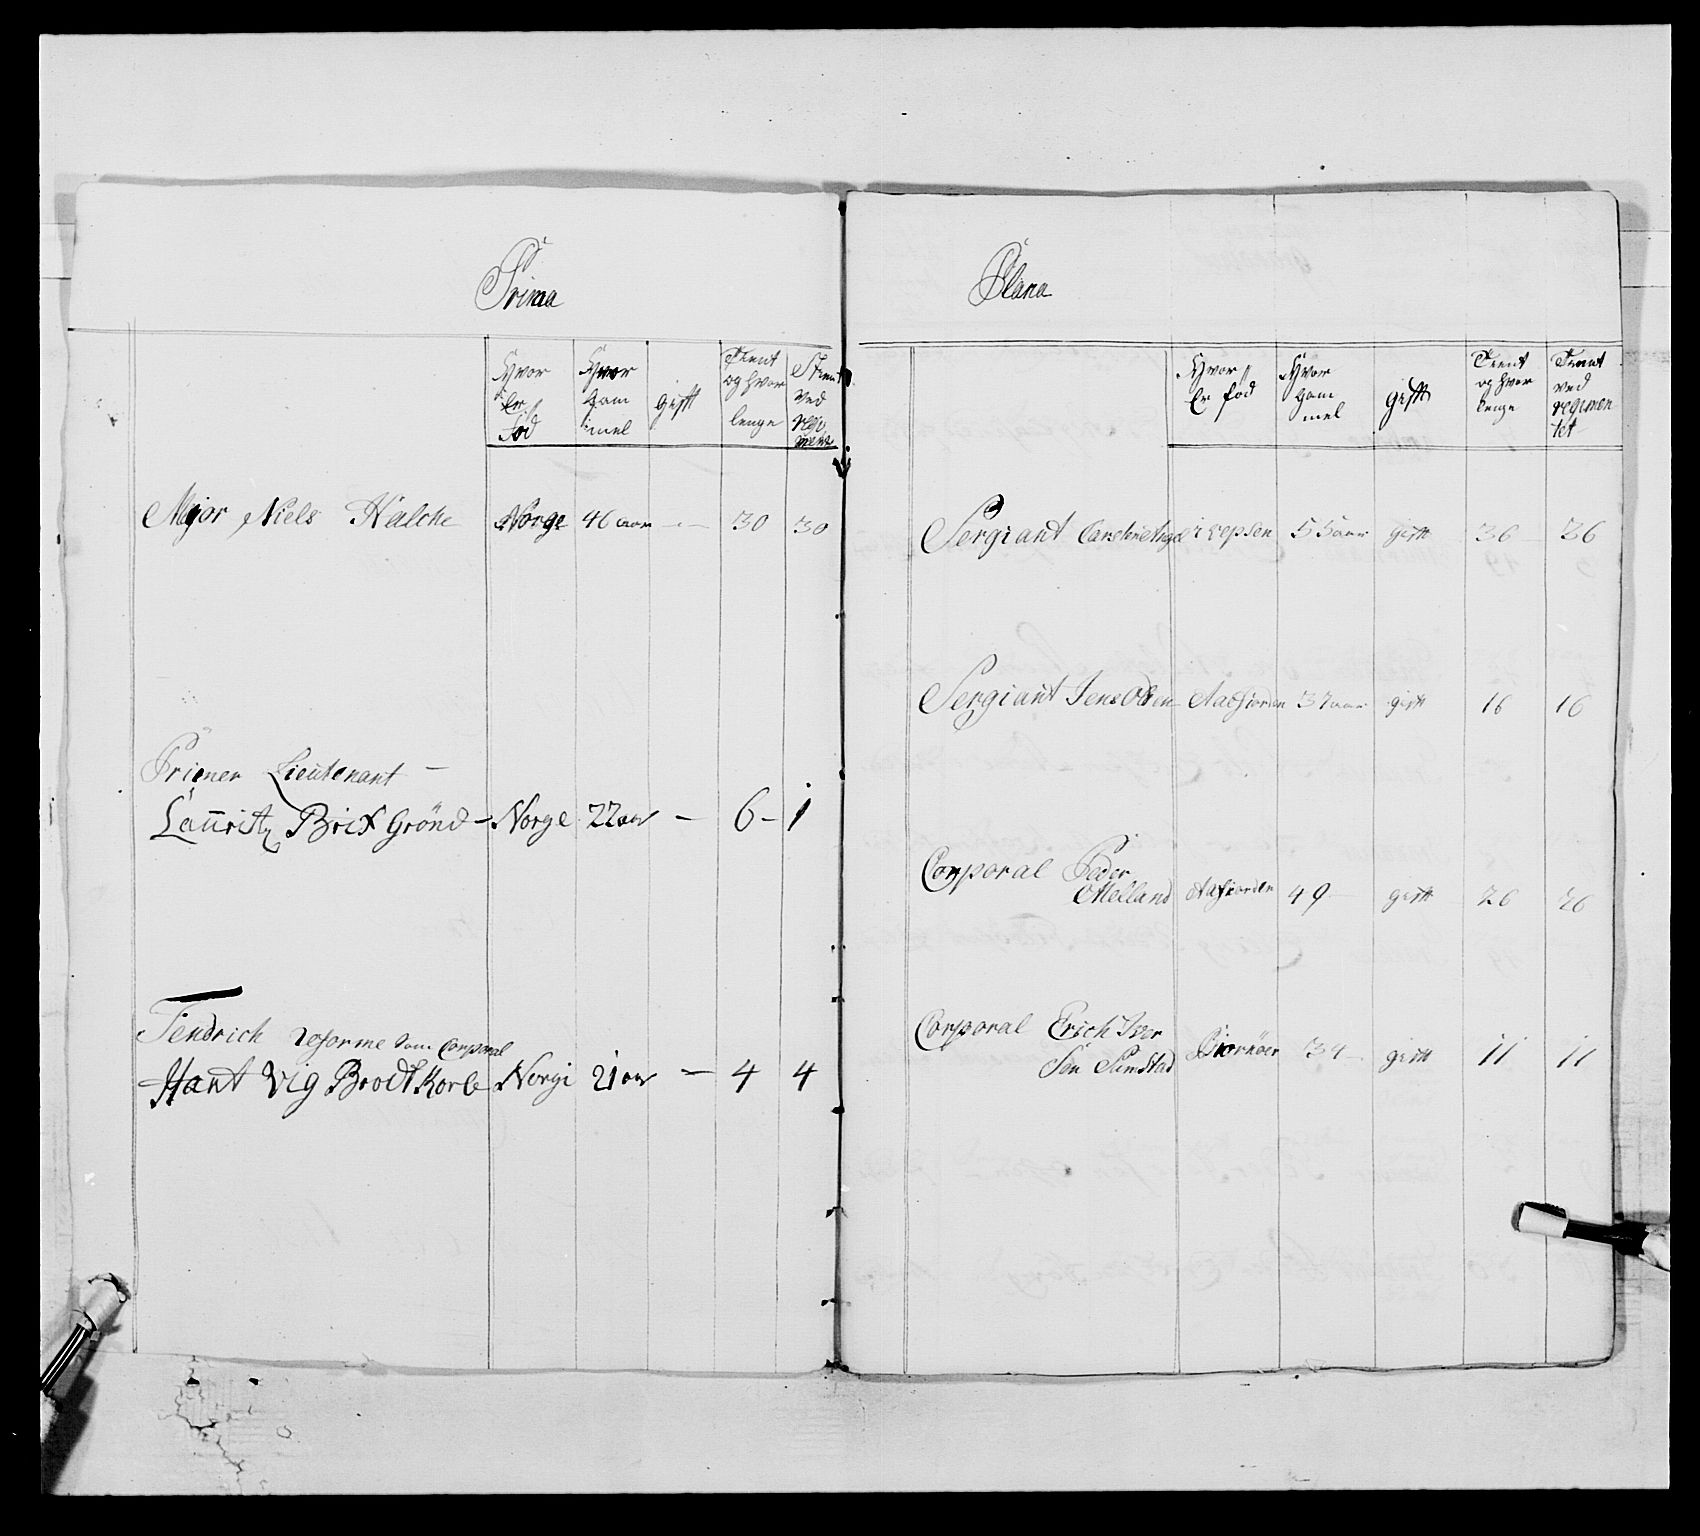 Prima
Hvor Er fød
Hvor gam mel
gift
Tient og hvor lenge
Tient ved regi ment
Major Niels Halche Norge 46 aar - - 30 30
Priemer Lieutenant -
Lauritz Brix Grönd - Norge 22 aar - 6 - 1
Fendrich reforme Som Corporal
Hant Vig Brodtkorb Norge 21 aar - 4 4
Plana
Hvor Er fød
Hvor gam mel
gift
Tient og hvor lenge
Tient ved regimen tet
Sergiant Carsten 55 aar gift 36 36
Sergiant Jens Olsen Aafiorden 37 aar gift 16 16
Corporal Peder
Melland Aafiorden 49 gift 26 26
Corporal Erich Iver
Sön Simstad Biornöer 34 - gift 11 11